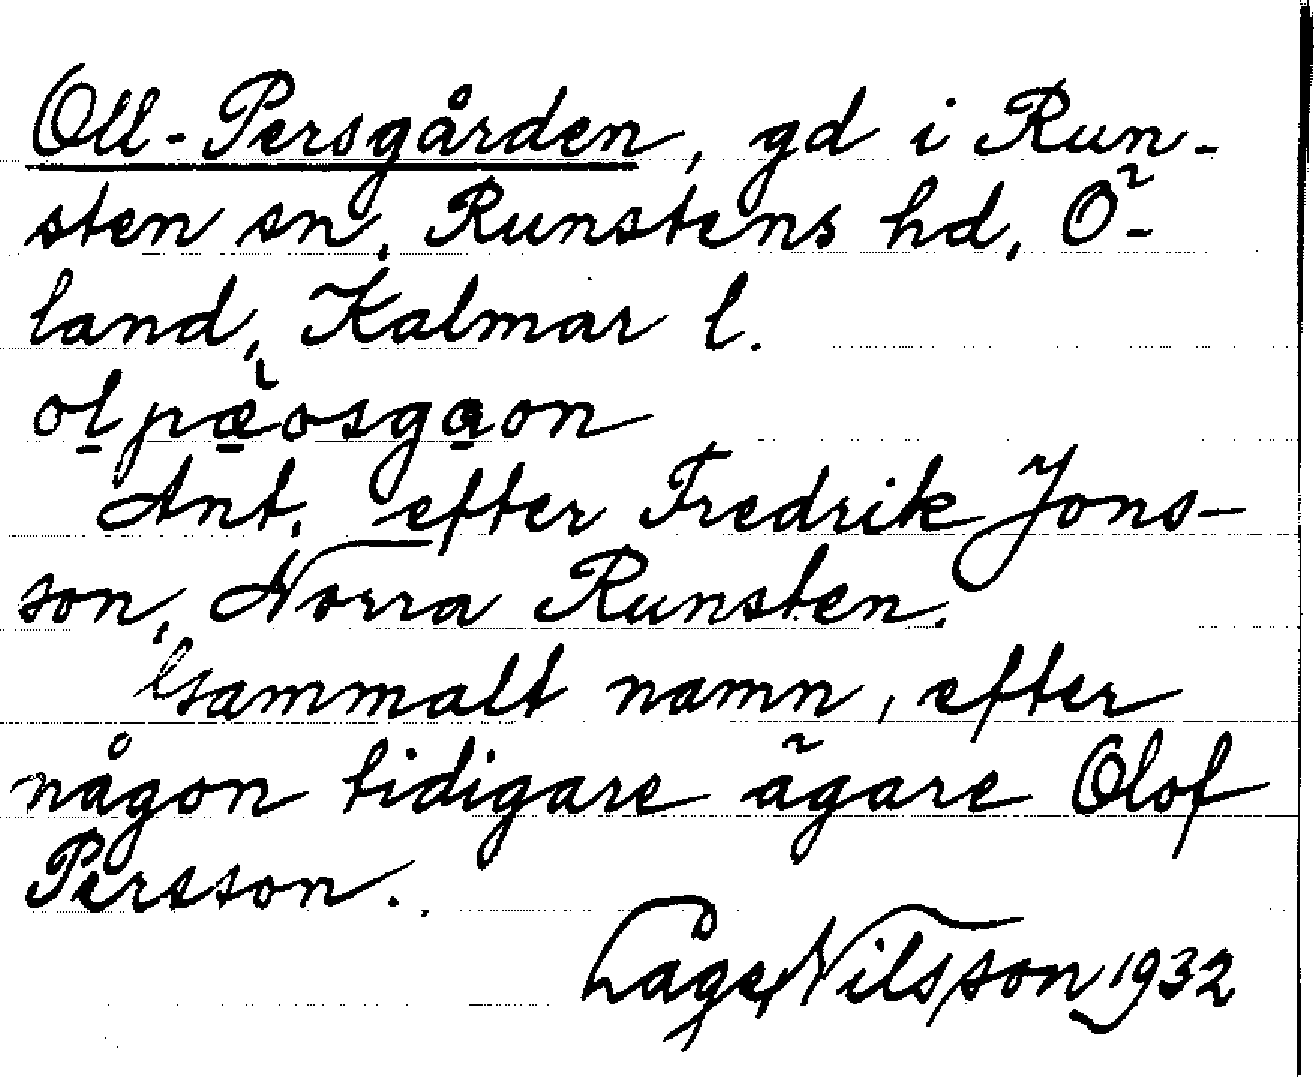 Oll-Persgården, gd i Run-
sten sn, Runstens hd, Ö-
land, Kalmar l.
Ant. efter Fredrik Jons-
son, Norra Runsten.
Gammalt namn, efter
någon tidigare ägare Olof
Persson.
Låge Nilsson 1932